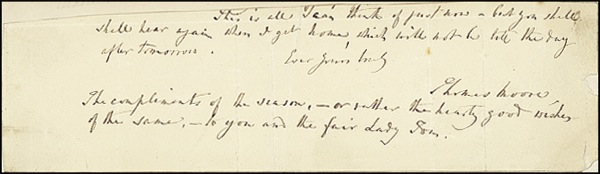 This is all I can think of just now – but you shall
shall hear again when I get home, which will not be till the day
after tomorrow.
Ever Yours truly
Thomas Moore
The compliments of the season, – or rather the hearty good wishes
of the same, – to you and the fair Lady Tom.